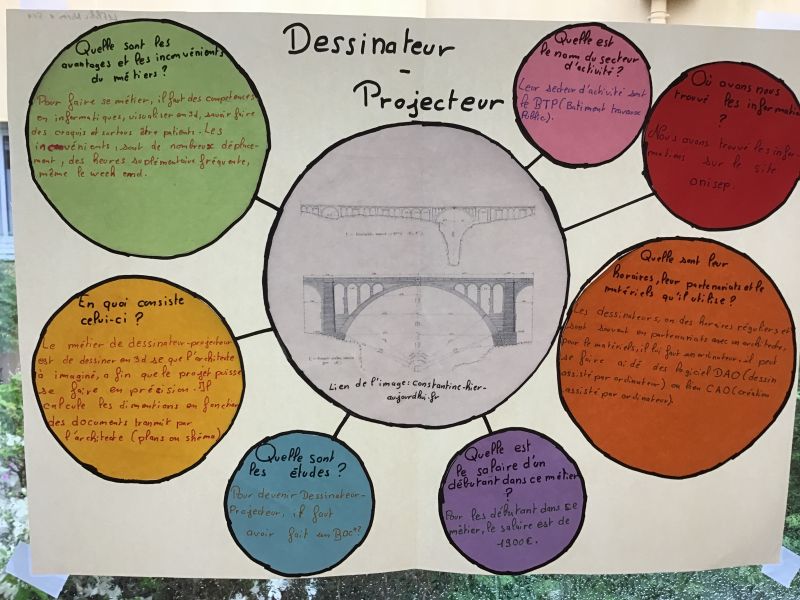 Dessinateur
-
Projecteur
Quelle sont les
avantages et les inconvénients
du métiers?
Pour faire se métier, il faut des compétences
en informatiques, visualiser en 3d, savoir faire
des croquis et surtous être patients. Les
inconvénients, sont de nombreux déplace-
ment, des heures suplémentaire fréquente,
même le week end.
Quelle est
le nom du secteur
d'activité?
Leur secteur d'activité sont
le BTP (Batiment travaux
Public).
Où avons nous
trouvé les informati
?
Nous avons trouvé les infor
mations sur le site
onisep.
En quoi consiste
celui-ci?
Le métier de dessinateur-projecteur
est de dessiner en 3d se que l'architecte
à imaginé, a fin que le projet puisse
se faire en précision. Il
calcule les dimentions en fonction
des documents tranmit par
l'architecte (plans ou shéma)
Lien de l'image: Constantine-hier-
aujourdhui.fr
Quelle sont leur
horaires, leur partenariats et le
matériels qu'il utilise?
Les dessinateurs, on des horaires réguliers et
sont souvent en partenariats avec un architecte,
pour le matériels, il lui faut un ordinateur. il peut
se faire aidé des logiciel DAO (dessin
assisté par ordinateur) ou bien CAO (création
assisté par ordinateur).
Quelle sont
les études?
Pour devenir Dessinateur-
Projecteur, il faut
avoir fait un Bac+2
Quelle est
le salaire d'un
débutant dans ce métier
?
Pour les débutant dans ce
métier, le salaire est de
1900€.